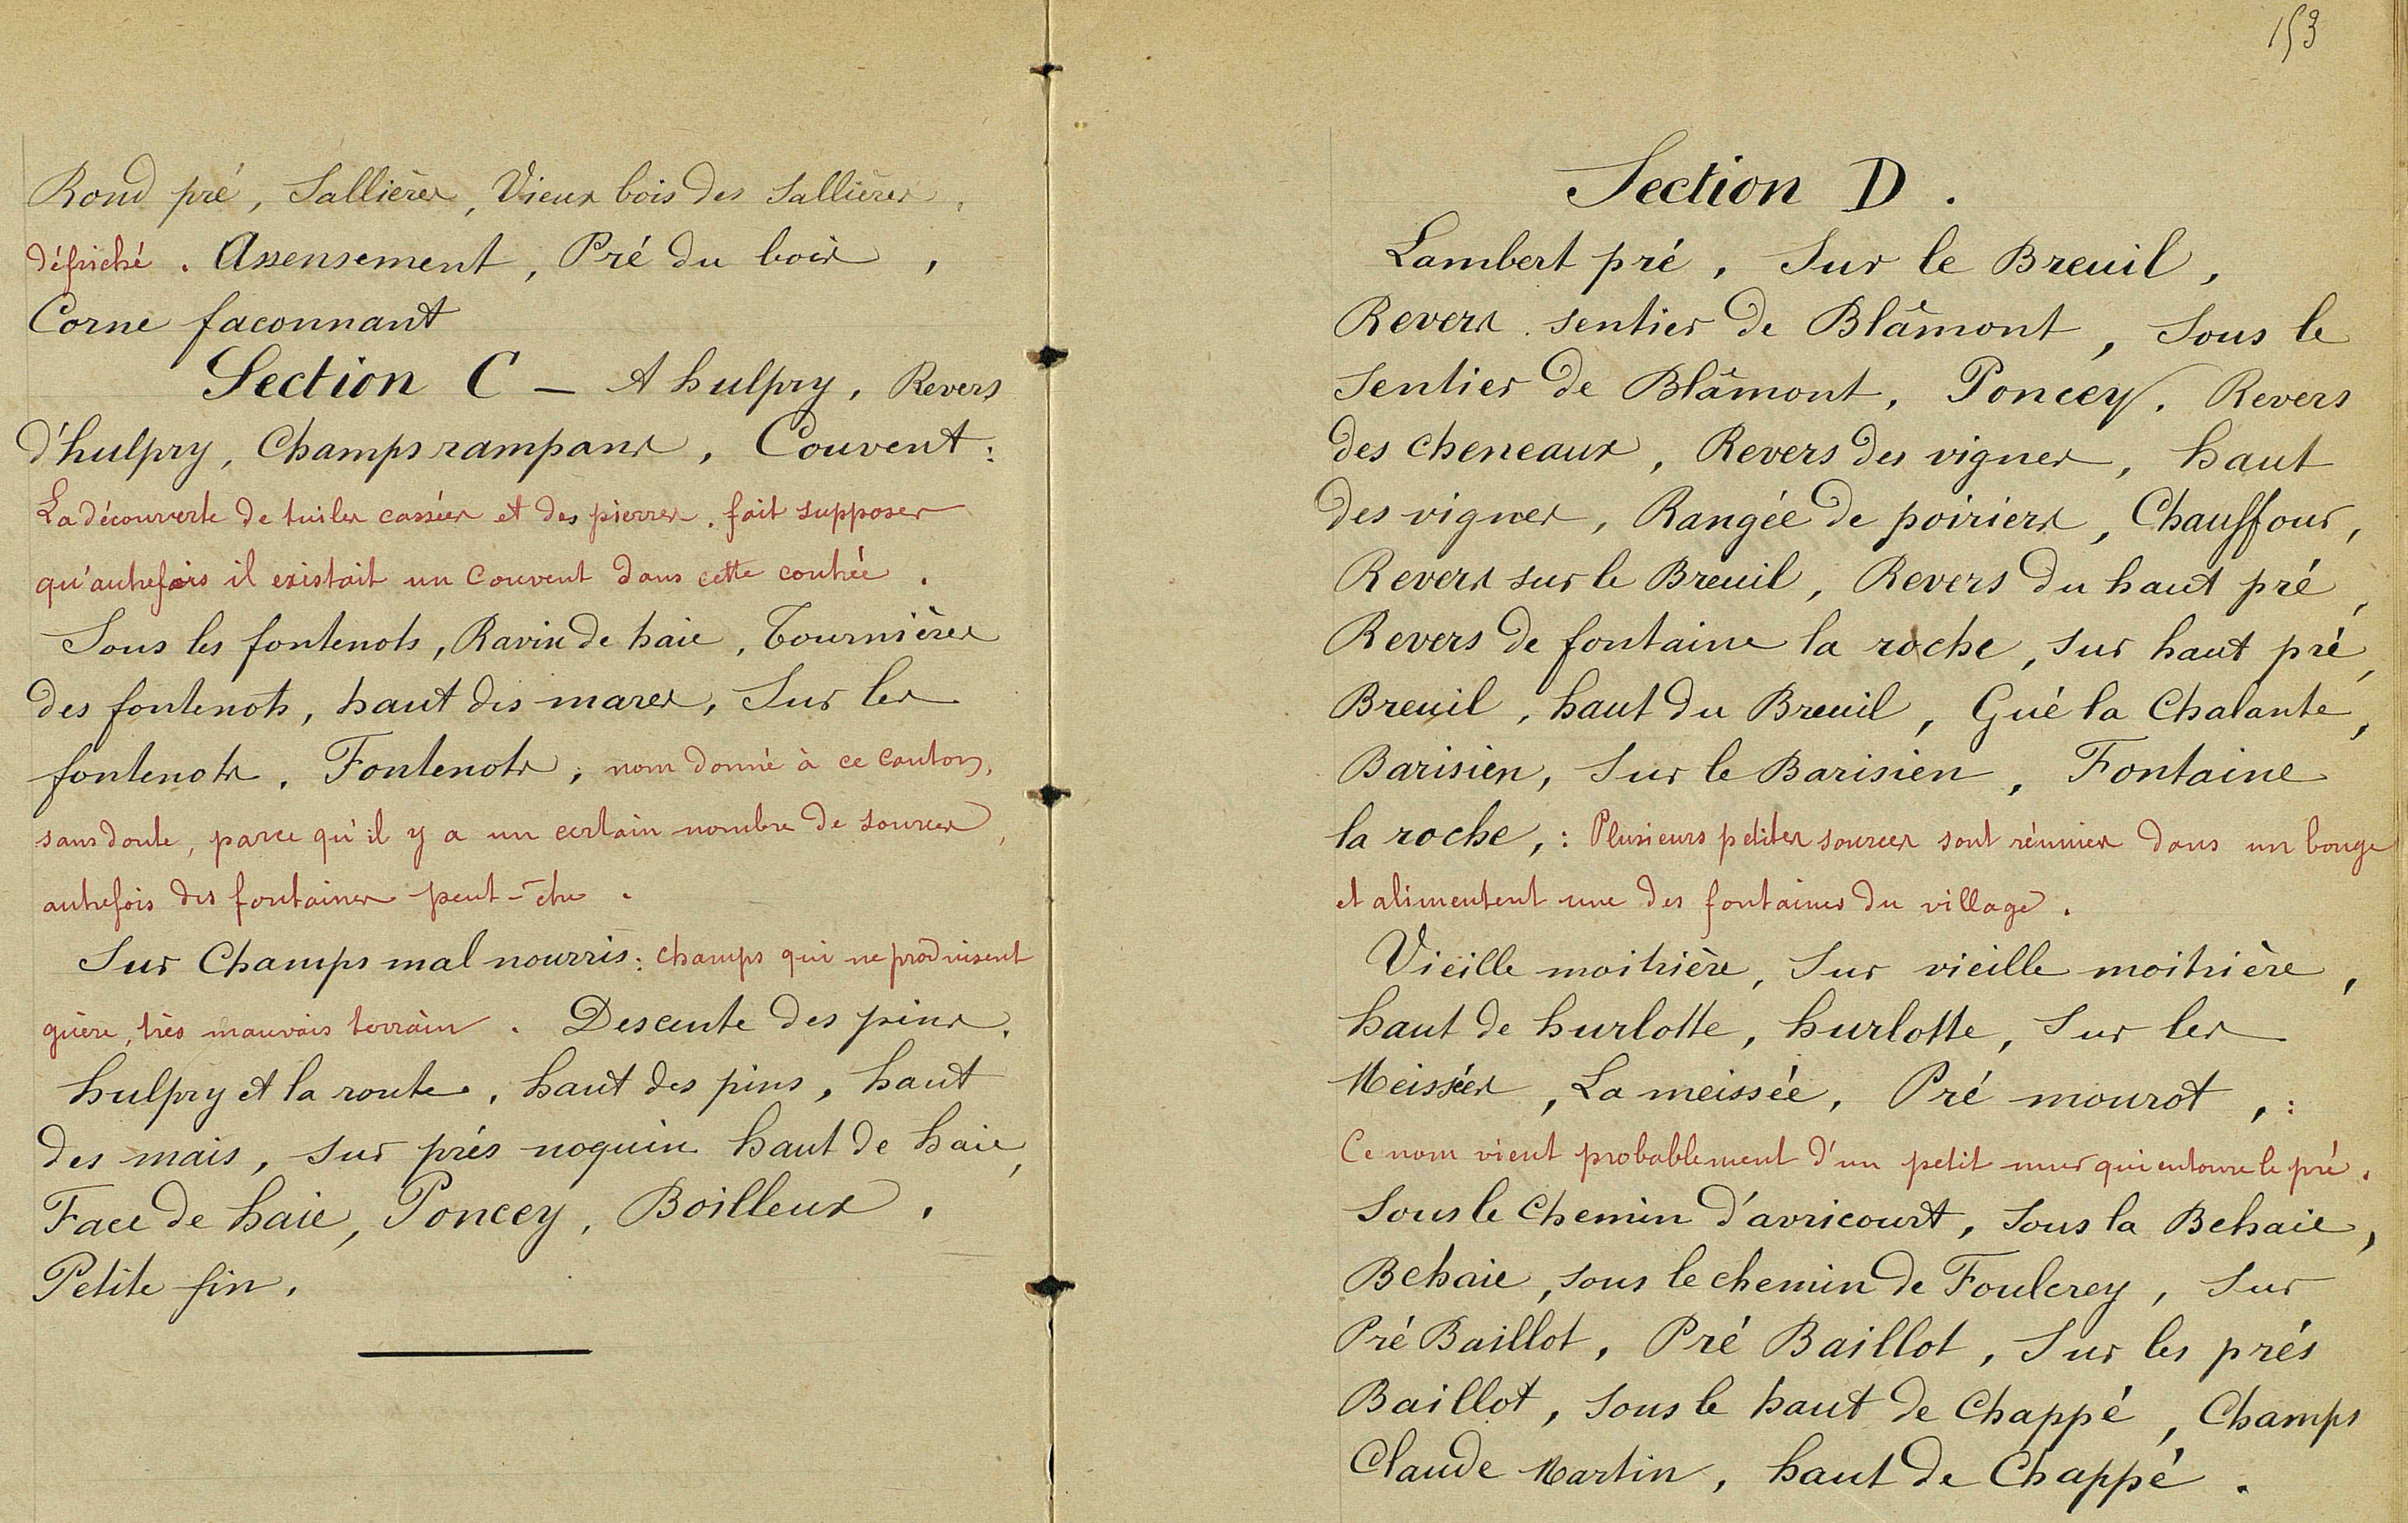 Rond pré, Sallières, Vieux bois des Sallières,
défriché. Assensement, Pré du bois,
Corne façonnant
Section C — A hulpry, Revers
d'hulpry, Champs rampans, Couvent :
La découverte de tuiles cassées et des pierres, fait supposer
qu'autrefois il existait un Couvent dans cette contrée.
Sous les fontenots, Ravin de haie, Tournières
des fontenots, haut des mares, Sur les
fontenots, Fontenots, nom donné à ce canton,
sans doute, parce qu'il y a un certain nombre de sources,
autrefois des fontaines peut-être.
Sur Champs mal nourris : champs qui ne produisent
guère, très mauvais terrain. Descente des pins,
hulpry et la route, haut des pins, haut
des mais, sur prés noquin haut de haie,
Face de haie, Poncey, Boilleux,
Petite fin.
153
Section D.
Lambert pré, Sur le Breuil,
Revers sentier de Blâmont, Sous le
Sentier de Blâmont, Poncey, Revers
des cheneaux, Revers des vignes, haut
des vignes, Rangée de poiriers, Chauffour,
Revers sur le Breuil, Revers du haut pré,
Revers de fontaine la roche, sur haut pré,
Breuil, haut du Breuil, Gué la Chalante,
Barisien, Sur le Barisien, Fontaine
la roche, : Plusieurs petites sources sont réunies dans un bouge
et alimentent une des fontaines du village.
Vieille moitrière, Sur vieille moitrière,
haut de hurlotte, hurlotte, Sur les
Meissées, La meissée, Pré mourot, :
Ce nom vient probablement d'un petit mur qui entoure le pré.
Sous le Chemin d'avricourt, Sous la Behaie,
Behaie, sous le chemin de Foulcrey, Sur
Pré Baillot, Pré Baillot, Sur les prés
Baillot, Sous le haut de Chappé, Champs
Claude Martin, haut de Chappé.